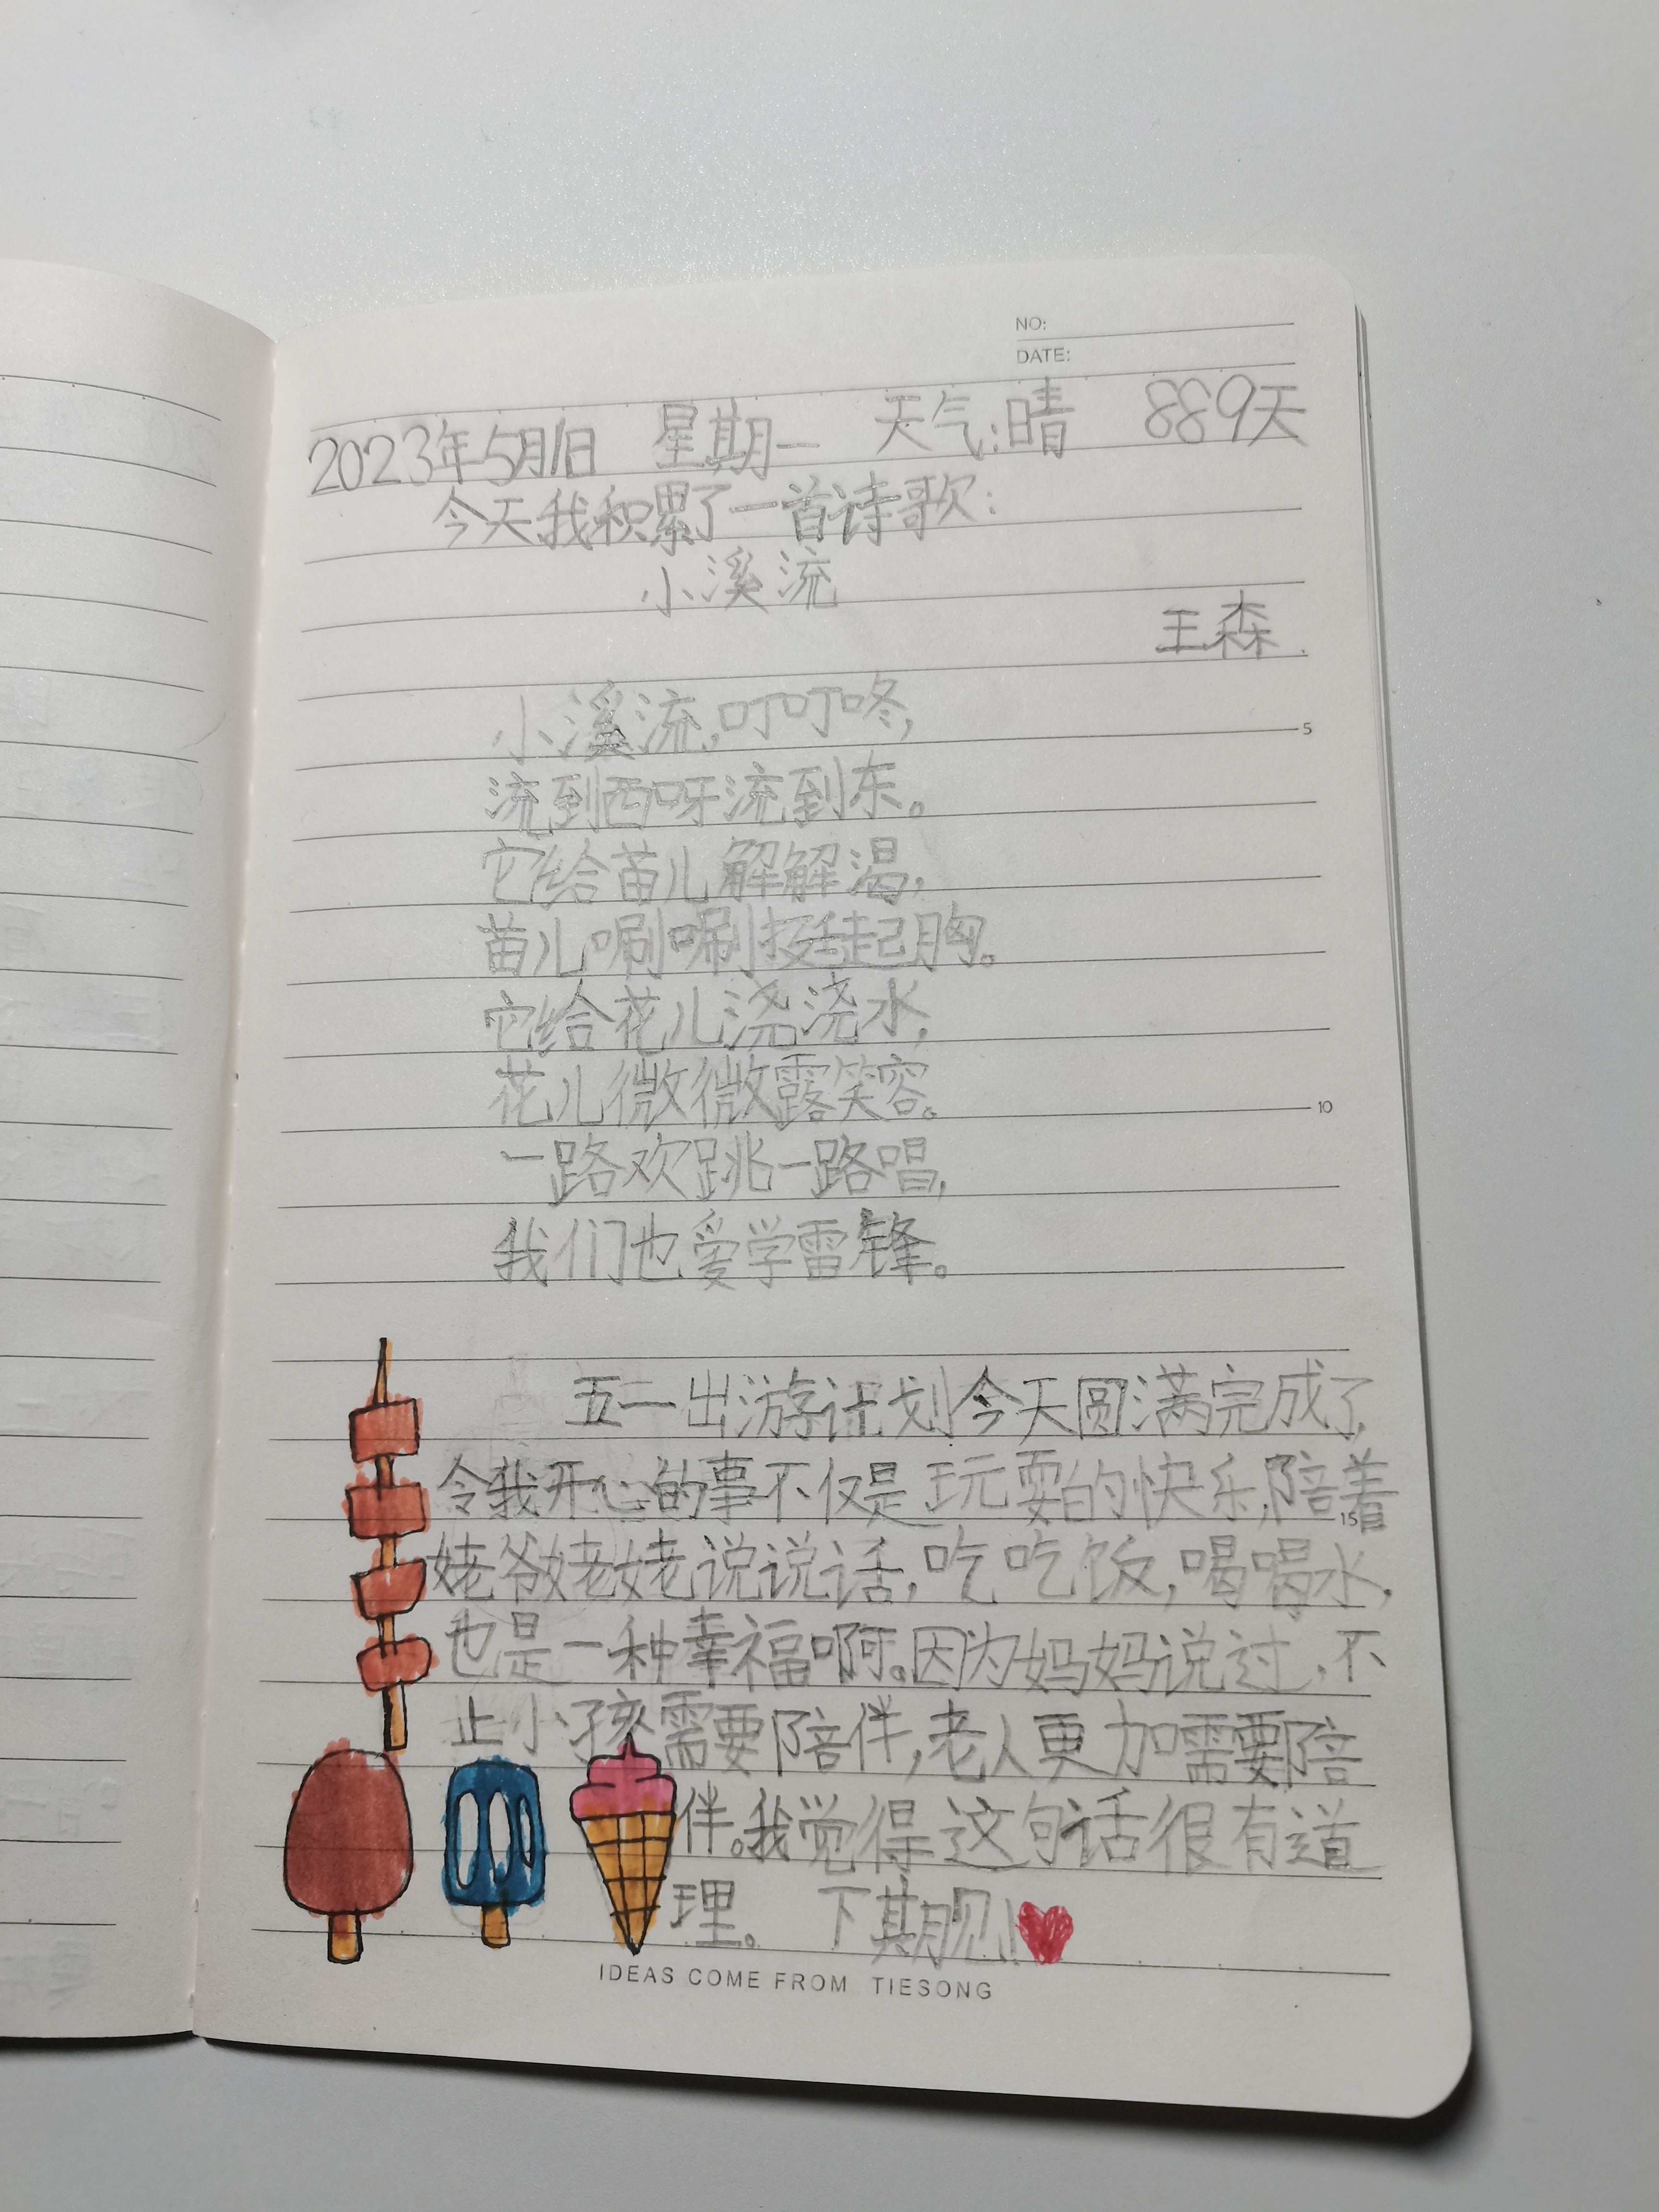 NO:
DATE:
2023年5月1日 星期一 天气:晴 889天
今天我积累了一首诗歌:
小溪流
王森
小溪流,叮叮咚,
5
流到西呀流到东。
它给苗儿解解渴,
苗儿唰唰挺起胸。
它给花儿浇浇水,
花儿微微露笑容。
10
一路欢跳一路唱,
我们也爱学雷锋。
五一出游计划今天圆满完成了,
令我开心的事不仅是玩耍的快乐,陪着
15
姥爷姥姥说说话,吃吃饭,喝喝水,
也是一种幸福啊。因为妈妈说过,不
止小孩需要陪伴,老人更加需要陪
伴。我觉得这句话很有道
理。 下期见!
IDEAS COME FROM TIESONG